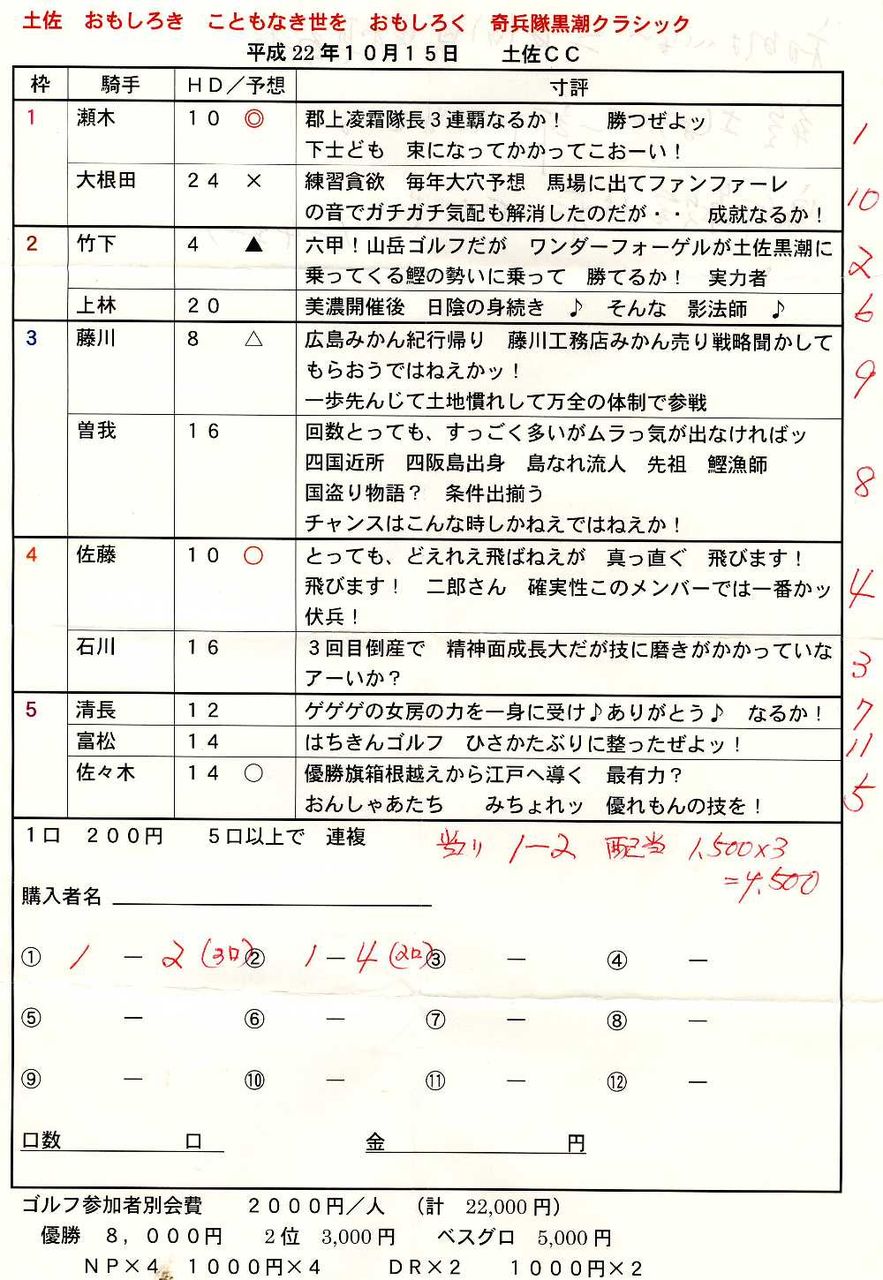 土佐 おもしろき こともなき世を おもしろく 奇兵隊黒潮クラシック
平成22年10月15日 土佐CC
枠 騎手 HD/予想 寸評
1 瀬木 10 ◎ 郡上凌霜隊長3連覇なるか! 勝つぜよッ
下士ども 束になってかかってこおーい! 1
大根田 24 × 練習貪欲 毎年大穴予想 馬場に出てファンファーレ
の音でガチガチ気配も解消したのだが・・ 成就なるか! 10
2 竹下 4 ▲ 六甲!山岳ゴルフだが ワンダーフォーゲルが土佐黒潮に
乗ってくる鰹の勢いに乗って 勝てるか! 実力者 2
上林 20 美濃開催後 日陰の身続き ♪ そんな 影法師 ♪ 6
3 藤川 8 △ 広島みかん紀行帰り 藤川工務店みかん売り戦略聞かして
もらおうではねえかッ! 9
一歩先んじて土地慣れして万全の体制で参戦
曽我 16 回数とっても、すっごく多いがムラっ気が出なければッ
四国近所 四阪島出身 島なれ流人 先祖 鰹漁師
国盗り物語? 条件出揃う 8
チャンスはこんな時しかねえではねえか!
4 佐藤 10 ○ とっても、どえれえ飛ばねえが 真っ直ぐ 飛びます!
飛びます! 二郎さん 確実性このメンバーでは一番かッ 4
伏兵!
石川 16 3回目倒産で 精神面成長大だが技に磨きがかかっていな
アーいか? 3
5 清長 12 ゲゲゲの女房の力を一身に受け♪ありがとう♪ なるか! 7
富松 14 はちきんゴルフ ひさかたぶりに整ったぜよッ! 11
佐々木 14 ○ 優勝旗箱根越えから江戸へ導く 最有力?
おんしゃあたち みちょれッ 優れもんの技を! 5
1口 200円 5口以上で 連複 当り 1-2 配当 1,500×3
=4,500
購入者名
① 1 - 2 (3口) ② 1 - 4 (2口) ③ - ④ -
⑤ - ⑥ - ⑦ - ⑧ -
⑨ - ⑩ - ⑪ - ⑫ -
口数 口 金 円
ゴルフ参加者別会費 2000円/人 (計 22,000円)
優勝 8,000円 2位 3,000円 ベスグロ 5,000円
NP×4 1000円×4 DR×2 1000円×2